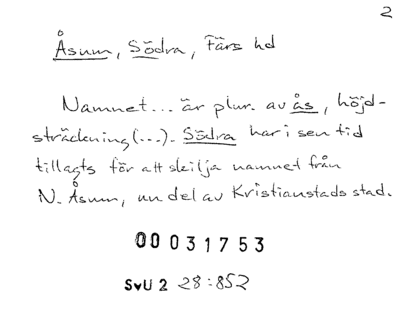 2
Åsum, Södra, Färs hd
Namnet... är plur. av ås, höjd-
sträckning (...). Södra har i sen tid
tillagts för att skilja namnet från
N. Åsum, nu del av Kristianstads stad.
00031753
SvU 2 28:852